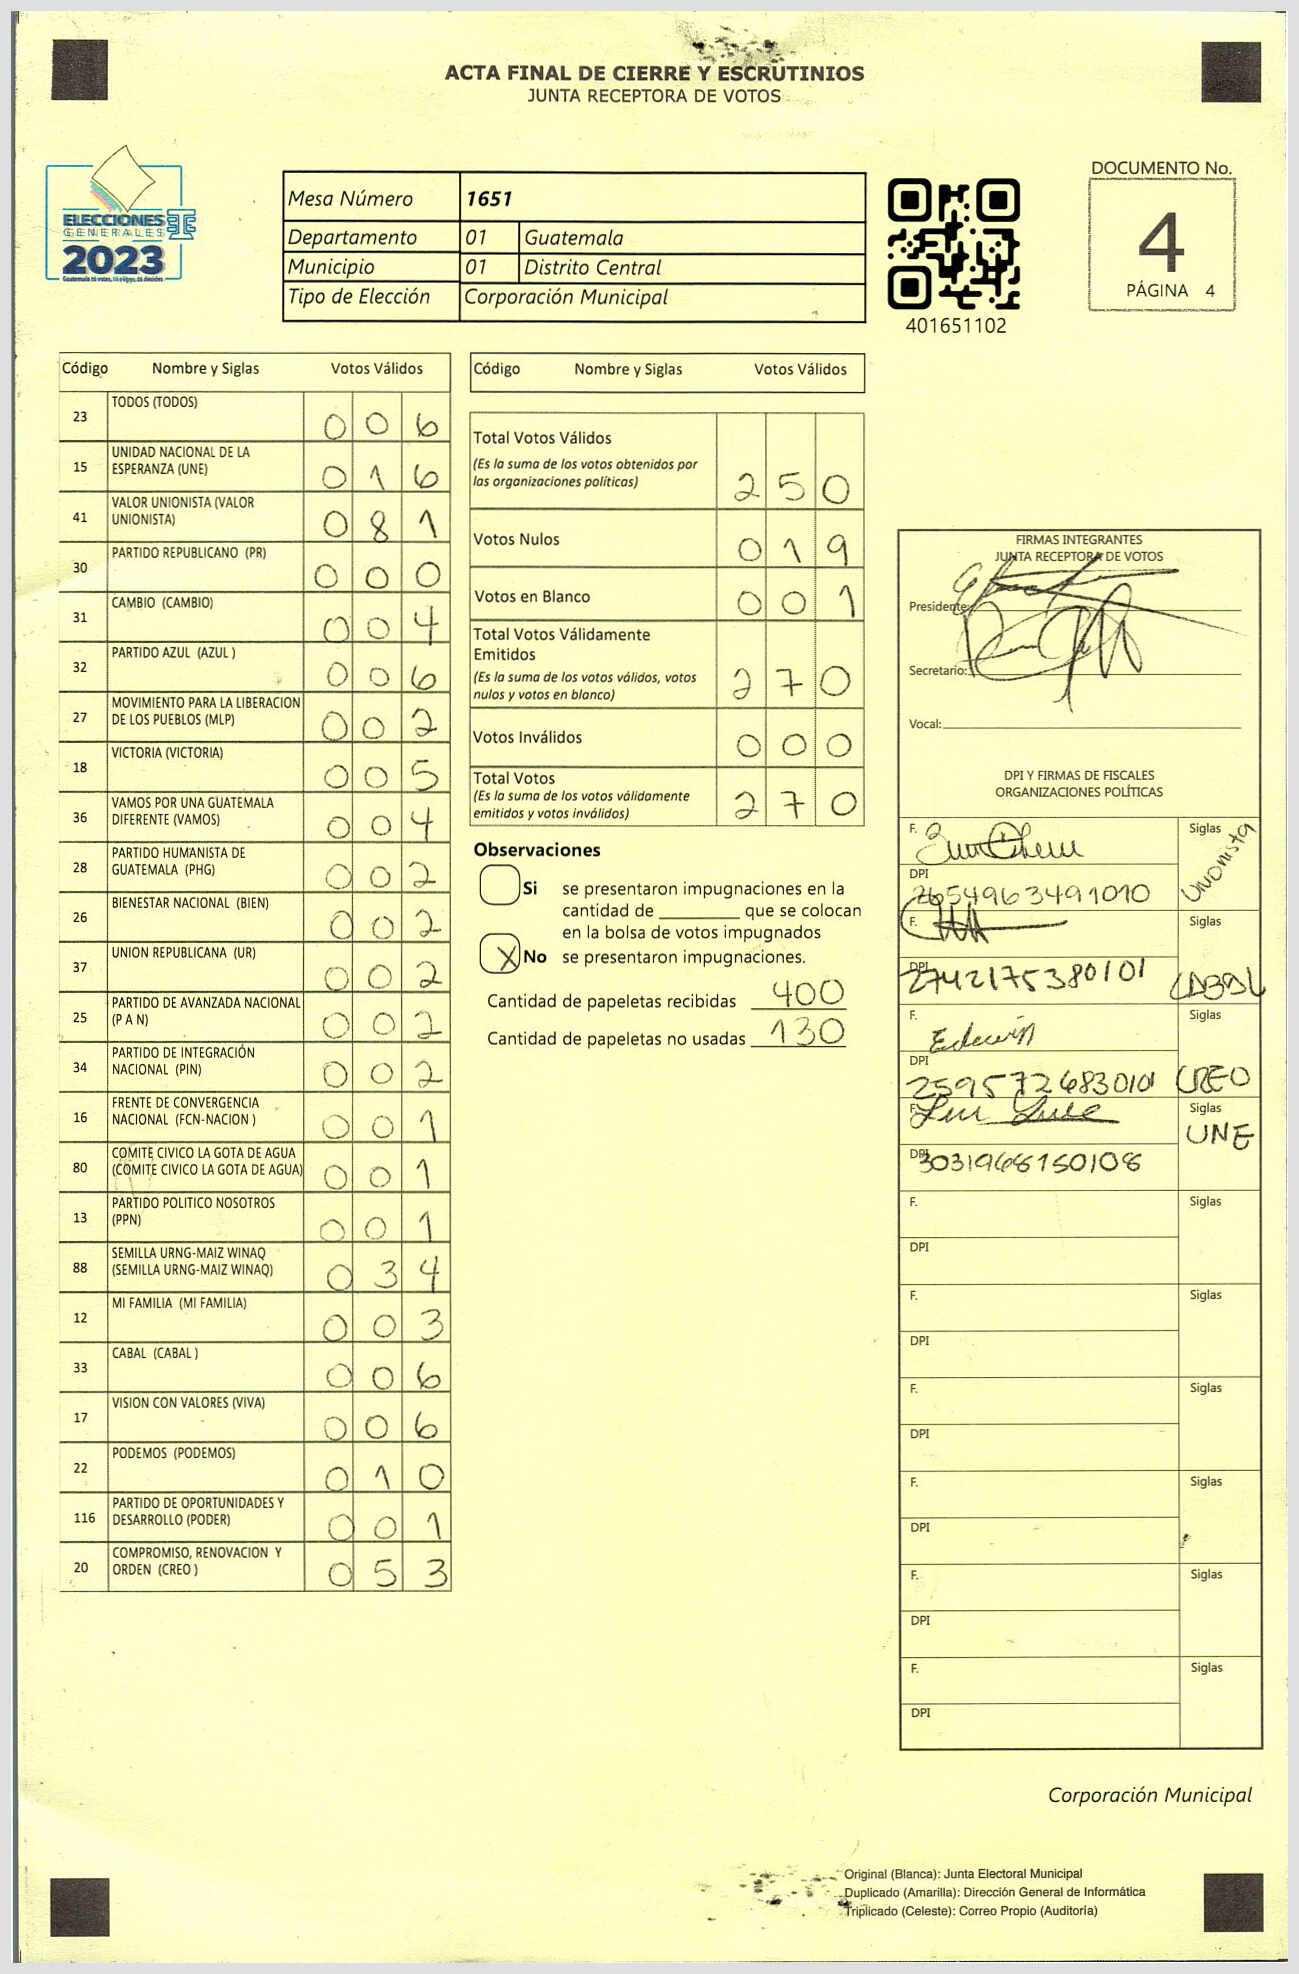 ACTA FINAL DE CIERRE Y ESCRUTINIOS
JUNTA RECEPTORA DE VOTOS
ELECCIONES
GENERALES
2023
Mesa Número 1651
Departamento 01 Guatemala
Municipio 01 Distrito Central
Tipo de Elección Corporación Municipal
401651102
DOCUMENTO No.
4
PÁGINA 4
Código Nombre y Siglas Votos Válidos
23 TODOS (TODOS) 0 0 6
15 UNIDAD NACIONAL DE LA
ESPERANZA (UNE) 0 1 6
41 VALOR UNIONISTA (VALOR
UNIONISTA) 0 8 1
30 PARTIDO REPUBLICANO (PR) 0 0 0
31 CAMBIO (CAMBIO) 0 0 4
32 PARTIDO AZUL (AZUL ) 0 0 6
27 MOVIMIENTO PARA LA LIBERACION
DE LOS PUEBLOS (MLP) 0 0 2
18 VICTORIA (VICTORIA) 0 0 5
36 VAMOS POR UNA GUATEMALA
DIFERENTE (VAMOS) 0 0 4
28 PARTIDO HUMANISTA DE
GUATEMALA (PHG) 0 0 2
26 BIENESTAR NACIONAL (BIEN) 0 0 2
37 UNION REPUBLICANA (UR) 0 0 2
25 PARTIDO DE AVANZADA NACIONAL
(P A N) 0 0 2
34 PARTIDO DE INTEGRACIÓN
NACIONAL (PIN) 0 0 2
16 FRENTE DE CONVERGENCIA
NACIONAL (FCN-NACION ) 0 0 1
80 COMITE CIVICO LA GOTA DE AGUA
(COMITE CIVICO LA GOTA DE AGUA) 0 0 1
13 PARTIDO POLITICO NOSOTROS
(PPN) 0 0 1
88 SEMILLA URNG-MAIZ WINAQ
(SEMILLA URNG-MAIZ WINAQ) 0 3 4
12 MI FAMILIA (MI FAMILIA) 0 0 3
33 CABAL (CABAL ) 0 0 6
17 VISION CON VALORES (VIVA) 0 0 6
22 PODEMOS (PODEMOS) 0 1 0
116 PARTIDO DE OPORTUNIDADES Y
DESARROLLO (PODER) 0 0 1
20 COMPROMISO, RENOVACION Y
ORDEN (CREO ) 0 5 3
Código Nombre y Siglas Votos Válidos
Total Votos Válidos
(Es la suma de los votos obtenidos por
las organizaciones políticas) 2 5 0
Votos Nulos 0 1 9
Votos en Blanco 0 0 1
Total Votos Válidamente
Emitidos
(Es la suma de los votos válidos, votos
nulos y votos en blanco) 2 7 0
Votos Inválidos 0 0 0
Total Votos
(Es la suma de los votos válidamente
emitidos y votos inválidos) 2 7 0
Observaciones
Si se presentaron impugnaciones en la
cantidad de ________ que se colocan
en la bolsa de votos impugnados
X No se presentaron impugnaciones.
Cantidad de papeletas recibidas 400
Cantidad de papeletas no usadas 130
FIRMAS INTEGRANTES
JUNTA RECEPTORA DE VOTOS
Presidente:
Secretario:
Vocal:
DPI Y FIRMAS DE FISCALES
ORGANIZACIONES POLÍTICAS
F. Siglas Unionista
DPI 2654963491010
F. Siglas
DPI 2742175380101 CABAL
F. Edwin Siglas
DPI 2595726830101 CREO
F. Siglas UNE
DPI 3031968150108
F. Siglas
DPI
F. Siglas
DPI
F. Siglas
DPI
F. Siglas
DPI
F. Siglas
DPI
F. Siglas
DPI
Corporación Municipal
Original (Blanca): Junta Electoral Municipal
Duplicado (Amarilla): Dirección General de Informática
Triplicado (Celeste): Correo Propio (Auditoría)